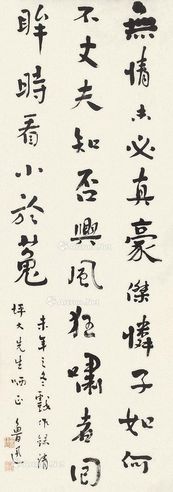 無情未必真豪傑憐子如何
不丈夫知否興風狂嘯者回
眸時看小於菟
未年之冬戲作錄請
坪井先生哂正 魯迅